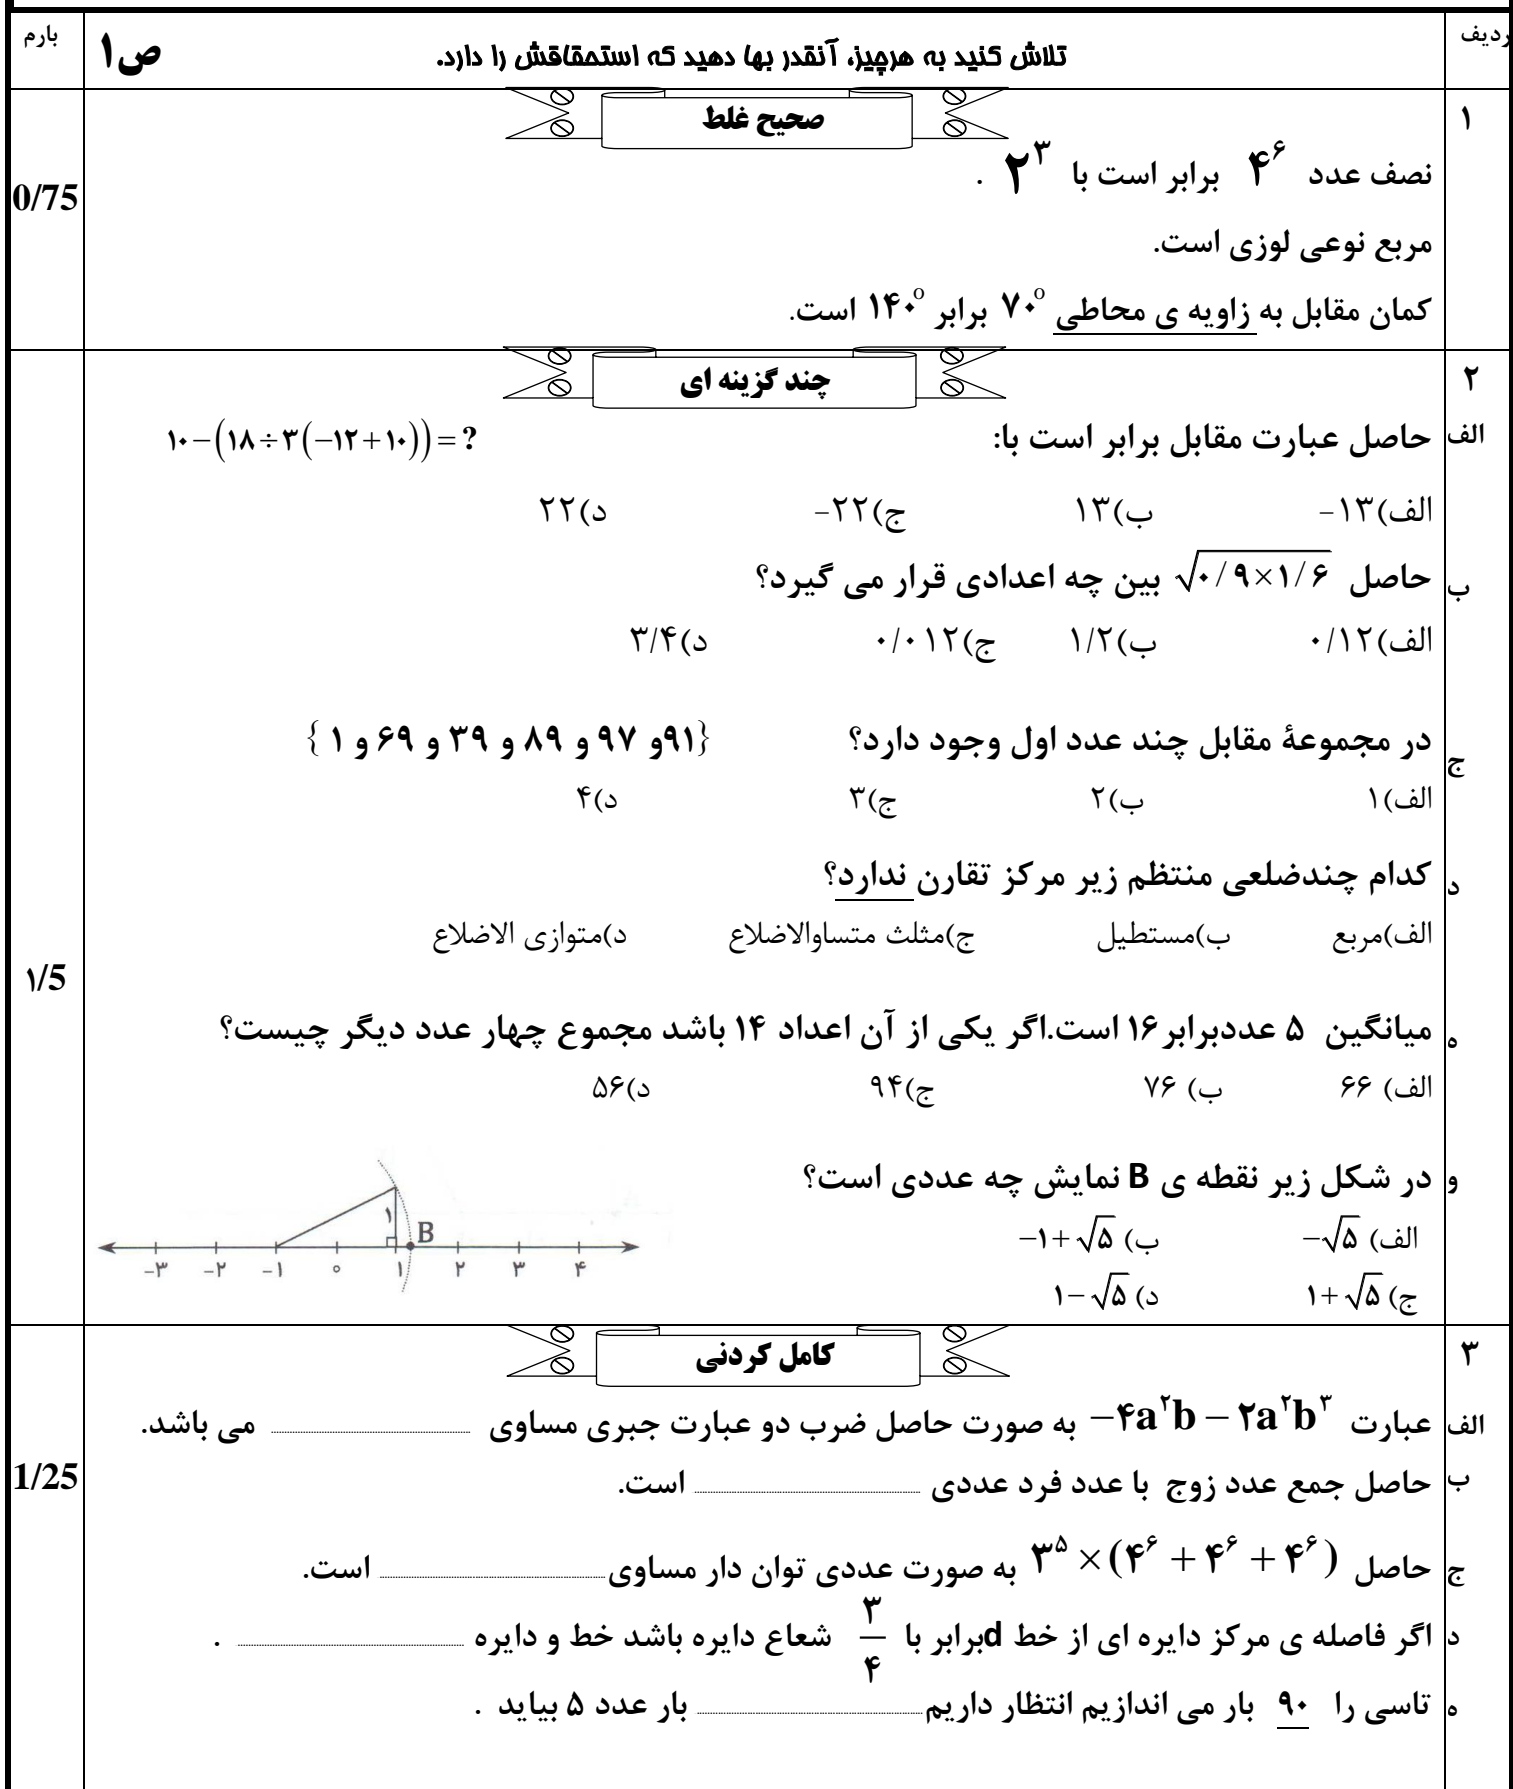 ردیف تلاش کنید به هرچیز، آنقدر بها دهید که استحقاقش را دارد. ص۱ بارم
۱ صحیح غلط
نصف عدد ۴^۶ برابر است با ۲^۳ .
0/75
مربع نوعی لوزی است.
کمان مقابل به زاویه ی محاطی ۷۰° برابر ۱۴۰° است.
۲ چند گزینه ای
الف حاصل عبارت مقابل برابر است با: ۱۰−(۱۸÷۳(−۱۲+۱۰))=?
الف)۱۳− ب)۱۳ ج)۲۲− د)۲۲
ب حاصل √۰/۹×۱/۶ بین چه اعدادی قرار می گیرد؟
الف)۰/۱۲ ب)۱/۲ ج)۰/۰۱۲ د)۳/۴
ج در مجموعهٔ مقابل چند عدد اول وجود دارد؟ {۹۱و ۹۷ و ۸۹ و ۳۹ و ۶۹ و ۱ }
الف)۱ ب)۲ ج)۳ د)۴
د کدام چندضلعی منتظم زیر مرکز تقارن ندارد؟
الف)مربع ب)مستطیل ج)مثلث متساوالاضلاع د)متوازی الاضلاع
۱/5
ه میانگین ۵ عددبرابر۱۶ است.اگر یکی از آن اعداد ۱۴ باشد مجموع چهار عدد دیگر چیست؟
الف) ۶۶ ب) ۷۶ ج)۹۴ د)۵۶
و در شکل زیر نقطه ی B نمایش چه عددی است؟
الف) −√۵ ب) −۱+√۵
ج) ۱+√۵ د) ۱−√۵
۱ B
−۳ −۲ −۱ ۰ ۱ ۲ ۳ ۴
۳ کامل کردنی
الف عبارت −۴a^۲b − ۲a^۲b^۳ به صورت حاصل ضرب دو عبارت جبری مساوی می باشد.
ب حاصل جمع عدد زوج با عدد فرد عددی است.
1/25
ج حاصل ۳^۵ × (۴^۶ + ۴^۶ + ۴^۶) به صورت عددی توان دار مساوی است.
د اگر فاصله ی مرکز دایره ای از خط dبرابر با ۳/۴ شعاع دایره باشد خط و دایره .
ه تاسی را ۹۰ بار می اندازیم انتظار داریم بار عدد ۵ بیاید .